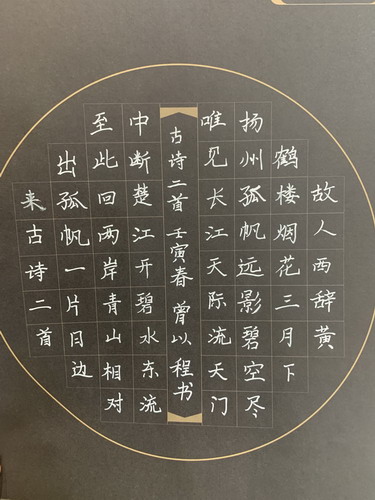 故人西辞黄
鹤楼烟花三月下
扬州孤帆远影碧空尽
唯见长江天际流天门
古诗二首壬寅春曾以程书
中断楚江开碧水东流
至此回两岸青山相对
出孤帆一片日边
来古诗二首